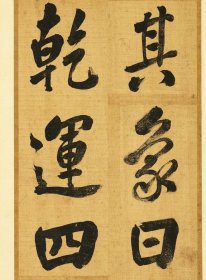 其象曰
乾運四